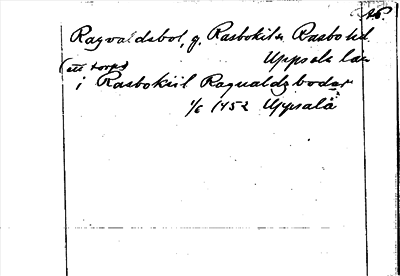 Ab.
Ragvaldsbol, g. Rasbokils Rasbo hd
Uppsala län
(ett torp)
i Rasbokiil Ragualdzbodar
1/6 1452 Uppsala